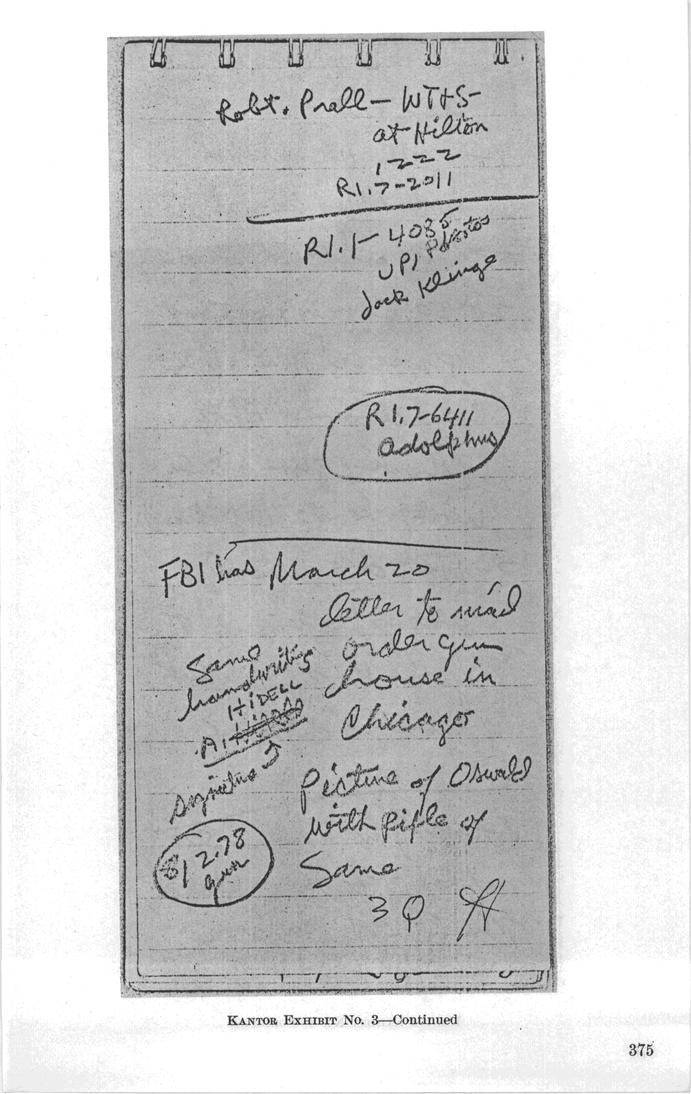 Robt. Prall - WT&S -
at Hilton
1222
RI. 7-2011
RI. 1-4035
UPI Photos
Jack Klinge
RI. 7-6411
Adolphus
FBI has March 20
letter to mail
order gun
house in
Chicago
Same
handwriting
HIDELL
A.
signature
Picture of Oswald
with rifle of
Same
$12.78
gun
30
KANTOR EXHIBIT No. 3—Continued
375